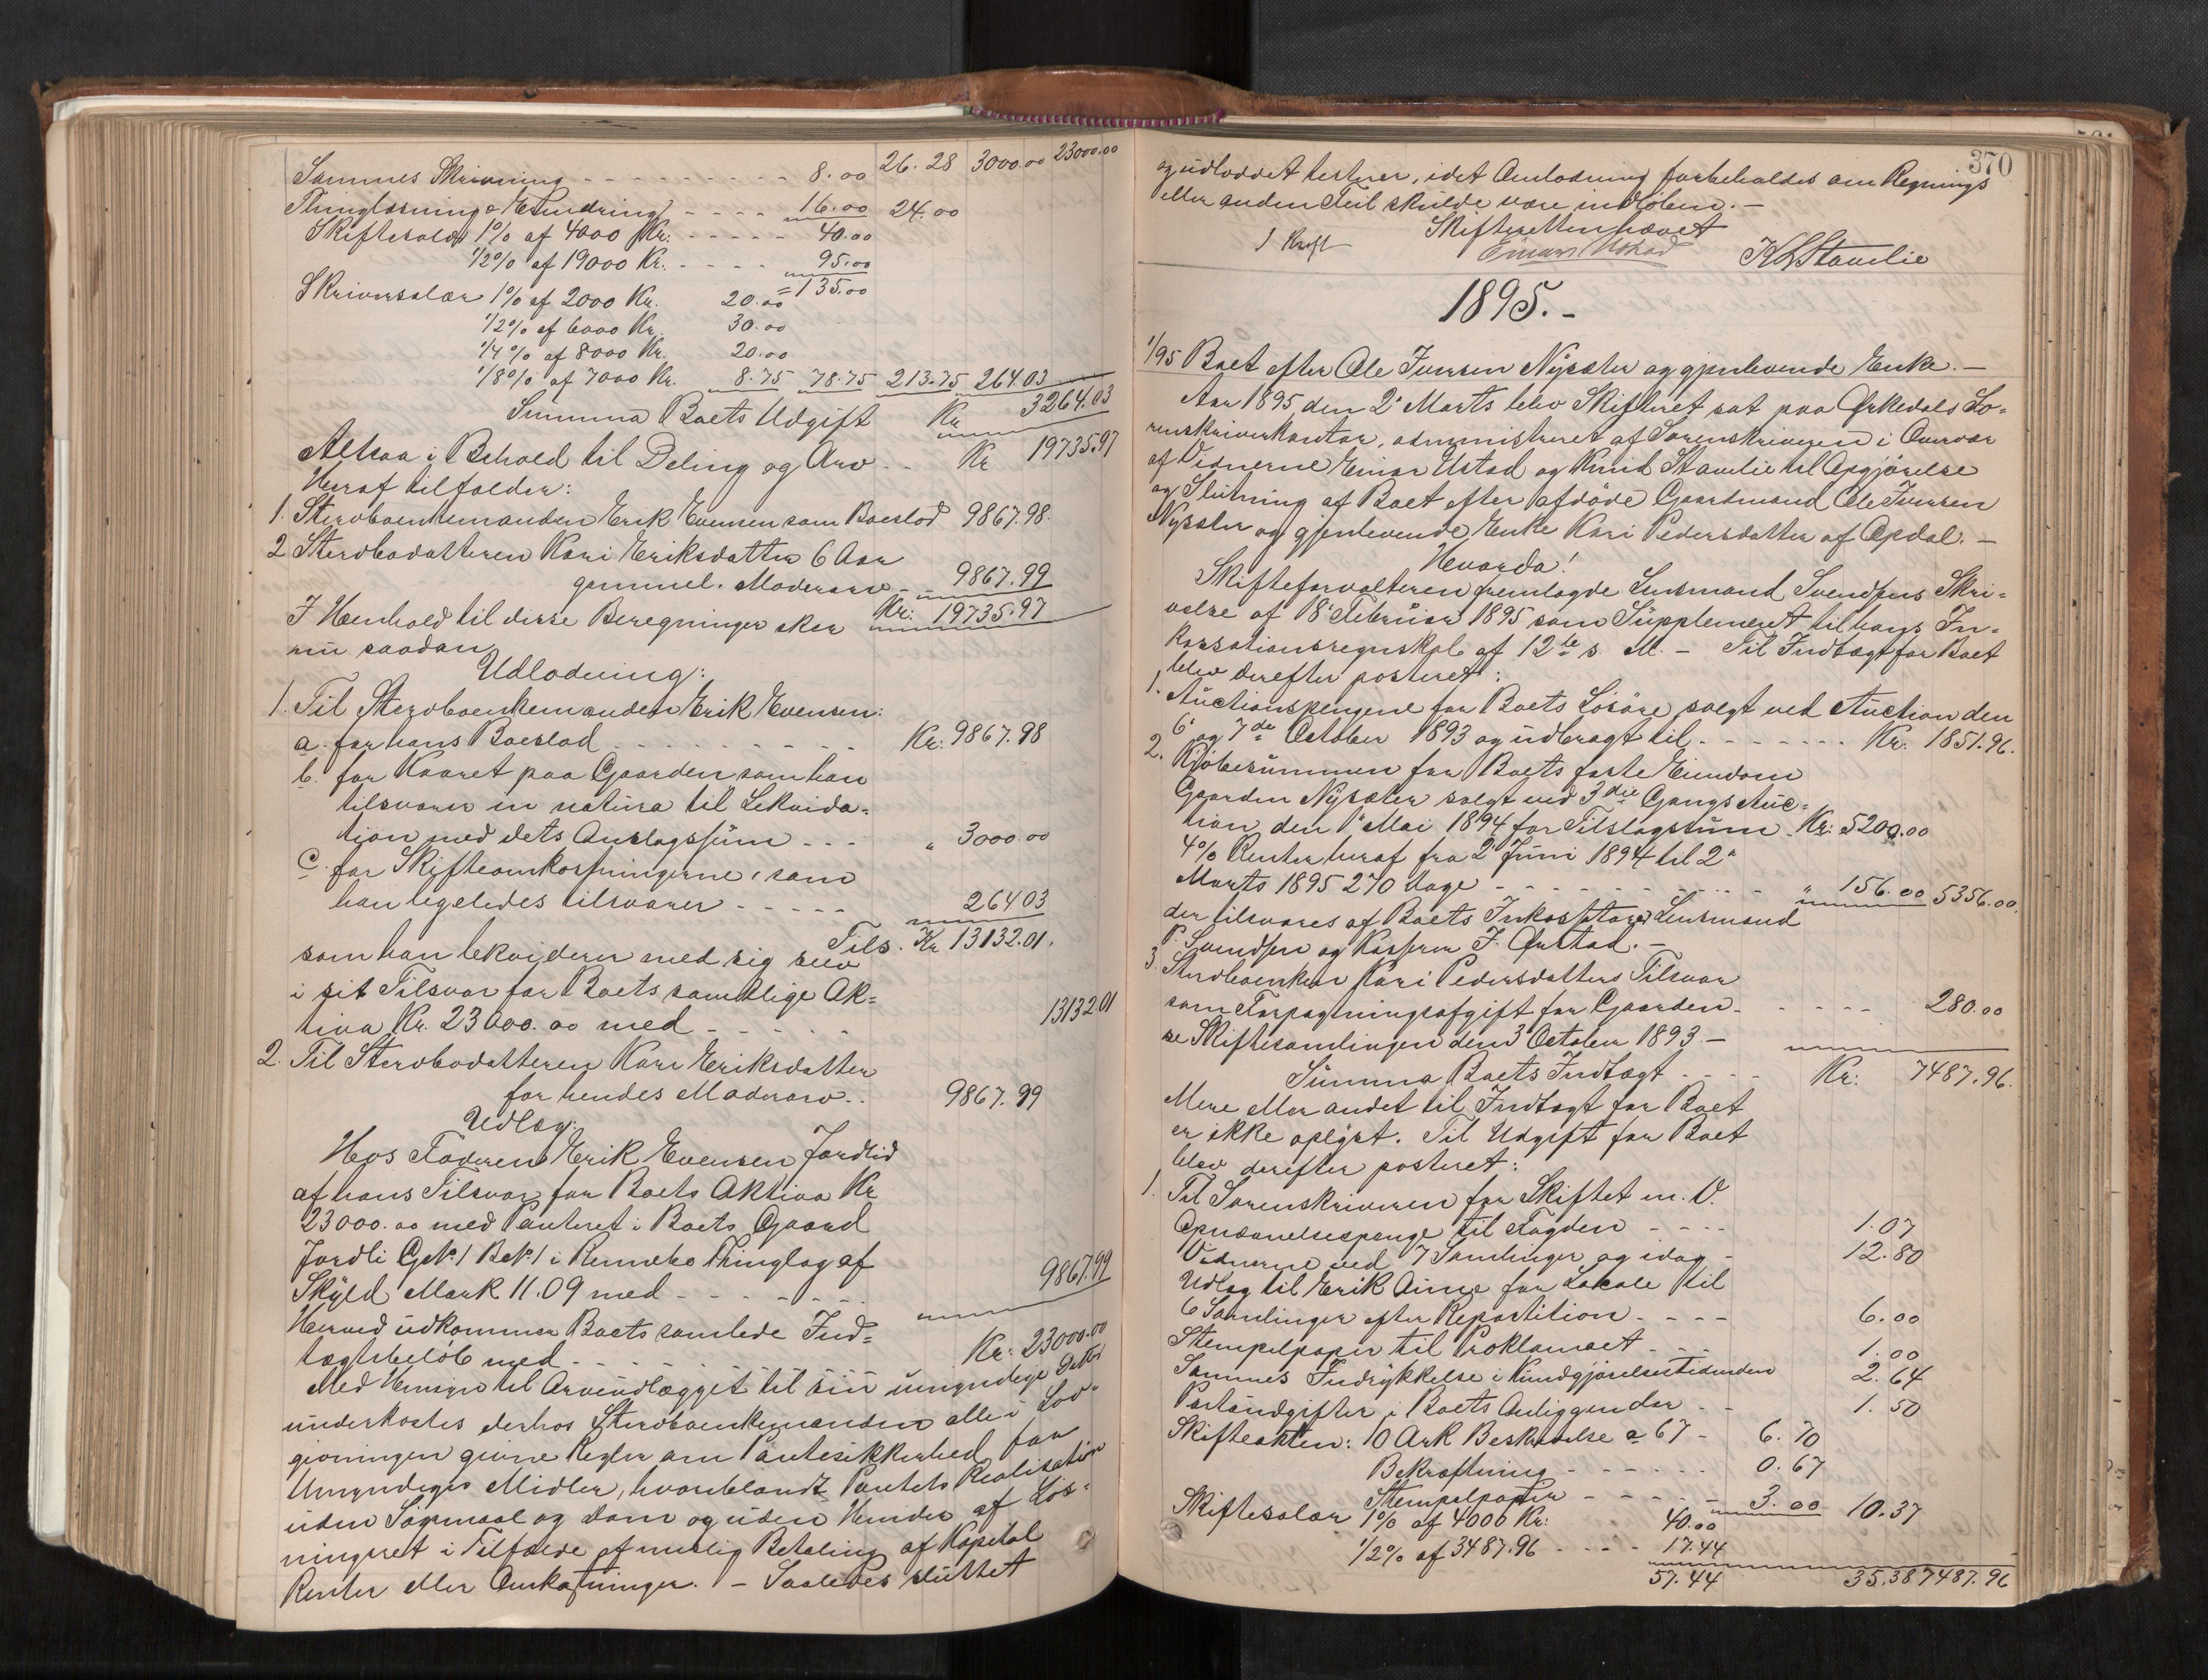 Sammes Skrivning - - - - - - - - - 8.00 26.28 3000.00 23000.00
Thinglæsning o Erindring - - - - 16.00 24.00
Skiftesalær 1% af 4000 Kr. - - - - - 40.00
1/2% af 19000 Kr. - - - - 95.00
= 135.00
Skriversalær 1% af 2000 Kr. 20.00
1/2% af 6000 Kr. 30.00
1/4% af 8000 Kr. 20.00
1/8% af 7000 Kr. 8.75 78.75 213.75 264.03
Summa Boets Udgift Kr 3264.03
Altsaa i Behold til Deling og Arv - - Kr 19735.97
Heraf tilfalder:
1. Stervboenkemanden Erik Evensen som Boeslod 9867.98.
2 Stervbodatteren Kari Eriksdatter 6 Aar
gammel. Moderarv - 9867.99
I Henhold til disse Beregninger sker Kr: 19735.97
nu saadan
Udlodning:
1. Til Stervboenkemanden Erik Evensen:
a. for hans Boeslod - - - - - - - - - Kr. 9867.98
b. for Kaaret paa Gaarden som han
tilsvarer in natura til Lekvida=
tion med dets Anslagssum - - - " 3000.00
c. for Skifteomkostningerne, som
han ligeledes tilsvarer - - - - - 264.03
Tils. Kr 13132.01.
som han lekviderer med sig selv
i sit Tilsvar for Boets samtlige Ak=
tiva Kr. 23000.00 med - - - - - 13132.01
2. Til Stervbodatteren Kari Eriksdatter
for hendes Moderarv - - 9867.99
Udlæg:
Hos Faderen Erik Evensen Jordlid
af hans Tilsvar for Boets Aktiva Kr
23000.00 med Panteret i Boets Gaard
Jordli G.No 1 B.No 1 i Rennebo Thinglag af
Skyld Mark 11.09 med - - - - - - - 9867.99
Herved udkommer Boets samlede Ind=
tægtsbeløb med - - - - - - - - - Kr. 23000.00
Med Hensyn til Arveudlægget til sin umyndige Datter
underkastes derhos Stervboenkemanden alle i Lov=
givningen givne Regler om Pantesikkerhed for
Umyndiges Midler, hvoriblandt Pantets Realisation
uden Søgmaal og Dom og uden Hinder af Løs=
ningsret i Tilfælde af muelig Betaling af Kapital
Renter eller Omkostninger. - Saaledes sluttet
370
og udloddet testerer, idet Omlodning forbeholdes om Regnings
eller anden Feil skulde være indløben. -
Skifteretten hævet
J Kraft Einar Ustad K L Stavlie
1895. -
1/95 Boet efter Ole Iversen Nysæter og gjenlevende Enke. -
Aar 1895 den 2' Marts blev Skifteret sat paa Ørkedals So=
renskriverkontor, administreret af Sorenskriveren i Overvær
af Vidnerne Einar Ustad og Knud Stavlie til Opgjørelse
og Slutning af Boet efter afdøde Gaardmand Ole Iversen
Nysæter og gjenlevende Enke Kari Pedersdatter af Opdal. -
Hvorda!
Skifteforvalteren fremlagde Lensmand Svendsens Skri=
velse af 18' Februar 1895 som Supplement til hans In=
kassationsregnskab af 12te s. M. - Til Indtægt for Boet
blev derefter posteret:
1. Auctionspengene for Boets Løsøre, solgt ved Auction den
6' og 7de October 1893 og udbragt til - - - - - - - Kr. 1851.96.
2. Kjøbesummen for Boets faste Eiendom
Gaarden Nysæter solgt ved 3die Gangs Auc=
tion den 1' Mai 1894 for Tilslagssum - Kr: 5200.00
4% Renter heraf fra 2' Juni 1894 til 2'
Marts 1895 270 Dage - - - - - - - - - - " 156.00 5356.00.
der tilsvares af Boets Inkassatorer Lensmand
P. Svendsen og Kasserer J. Ørstad. -
3. Stervboenken Kari Pedersdatters Tilsvar
som Forpagtningsafgift for Gaarden - - - - - 280.00
se Skiftesamlingen den 3 October 1893 -
Summa Boets Indtægt - - - - Kr: 7487.96.
Mere eller andet til Indtægt for Boet
er ikke oplyst. Til Udgift for Boet
blev derefter posteret:
1. Til Sorenskriveren for Skiftet m. V.
Opnævnelsespenge til Fogden - - - - 1.07
Vidnerne ved 7 Samlinger og idag - 12.80
Udlæg til Erik Aune for Lokale til
6 Samlinger efter Repartition - - - - 6.00
Stempelpapir til Proklamaet - - - 1.00
Sammes Indrykkelse i Kundgjørelsestidenden 2.64
Portoudgifter i Boets Anliggender - - 1.50
Skifteakten: 10 Ark Beskrivelse a 67 - 6.70
Bekræftning - - - - - - 0.67
Stempelpapir - - - - - - 3.00 10.37
Skiftesalær 1% af 4000 Kr: 40.00
1/2% af 3487.96 - - - - 17.44
57.44 35.38 7487.96